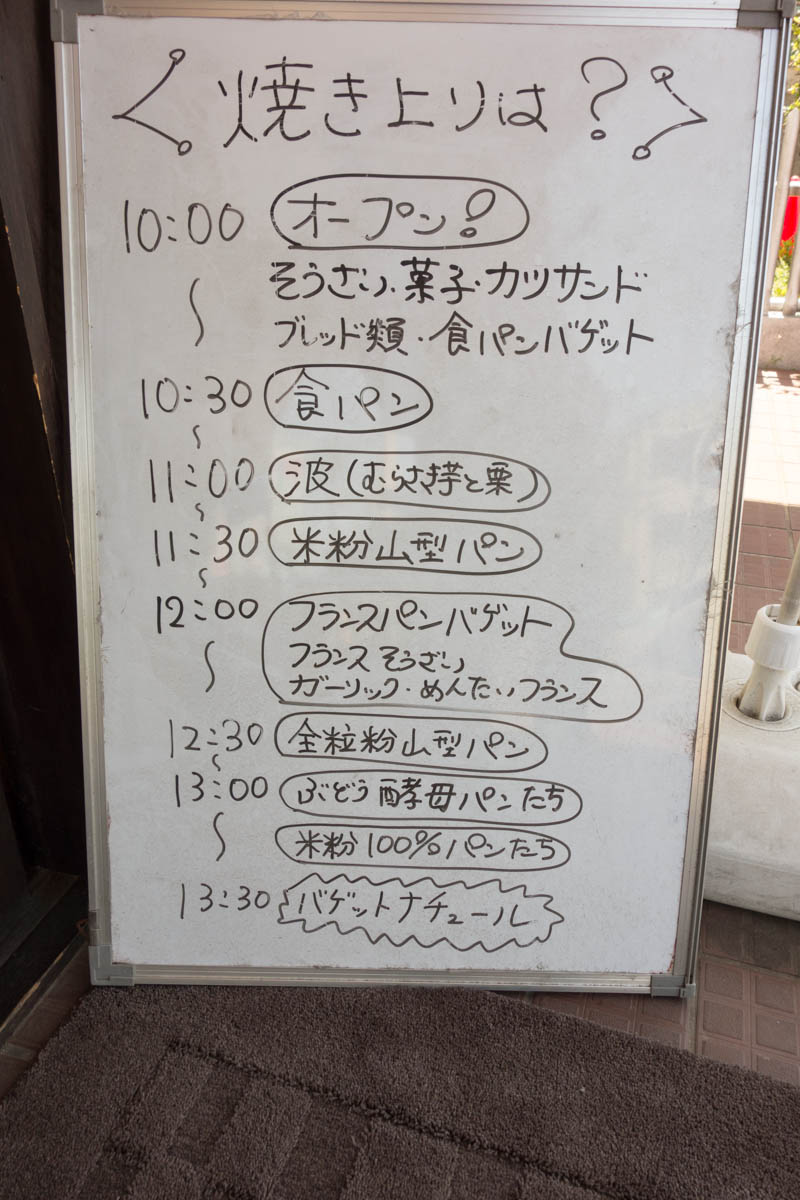 焼き上りは?
10:00 オープン!
〜 そうざい、菓子・カツサンド
ブレッド類・食パンバゲット
10:30 食パン
〜
11:00 波(むらさき芋と栗)
〜
11:30 米粉山型パン
〜
12:00 フランスパンバゲット
〜 フランスそうざい
ガーリック・めんたいフランス
12:30 全粒粉山型パン
〜
13:00 ぶどう酵母パンたち
〜 米粉100%パンたち
13:30 バゲットナチュール